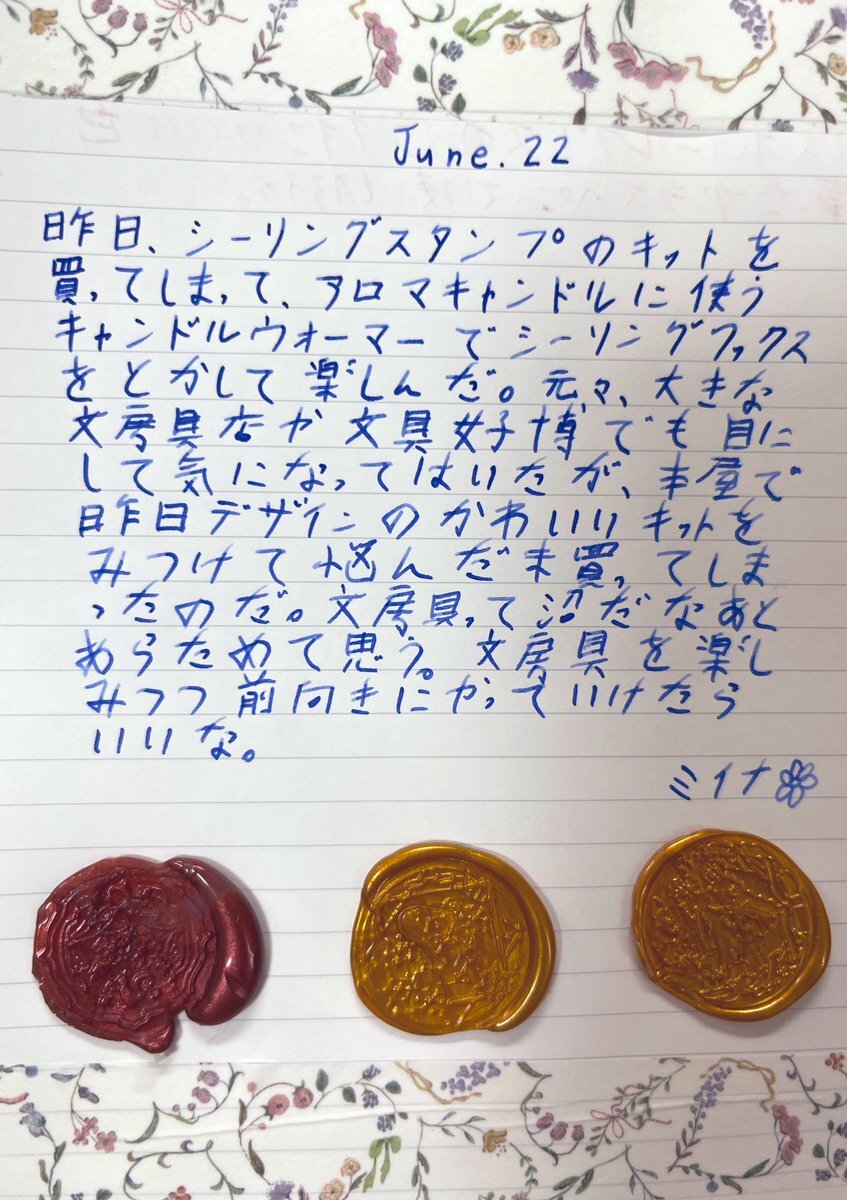 June.22
昨日、シーリングスタンプのキットを
買ってしまって、アロマキャンドルに使う
キャンドルウォーマーでシーリングワックス
をとかして楽しんだ。元々、大きな
文房具店や文具女子博でも目に
して気になってはいたが、本屋で
昨日デザインのかわいいキットを
みつけて悩んだ末買ってしま
ったのだ。文房具って沼だなぁと
あらためて思う。文房具を楽し
みつつ前向きにやっていけたら
いいな。
ミイナ